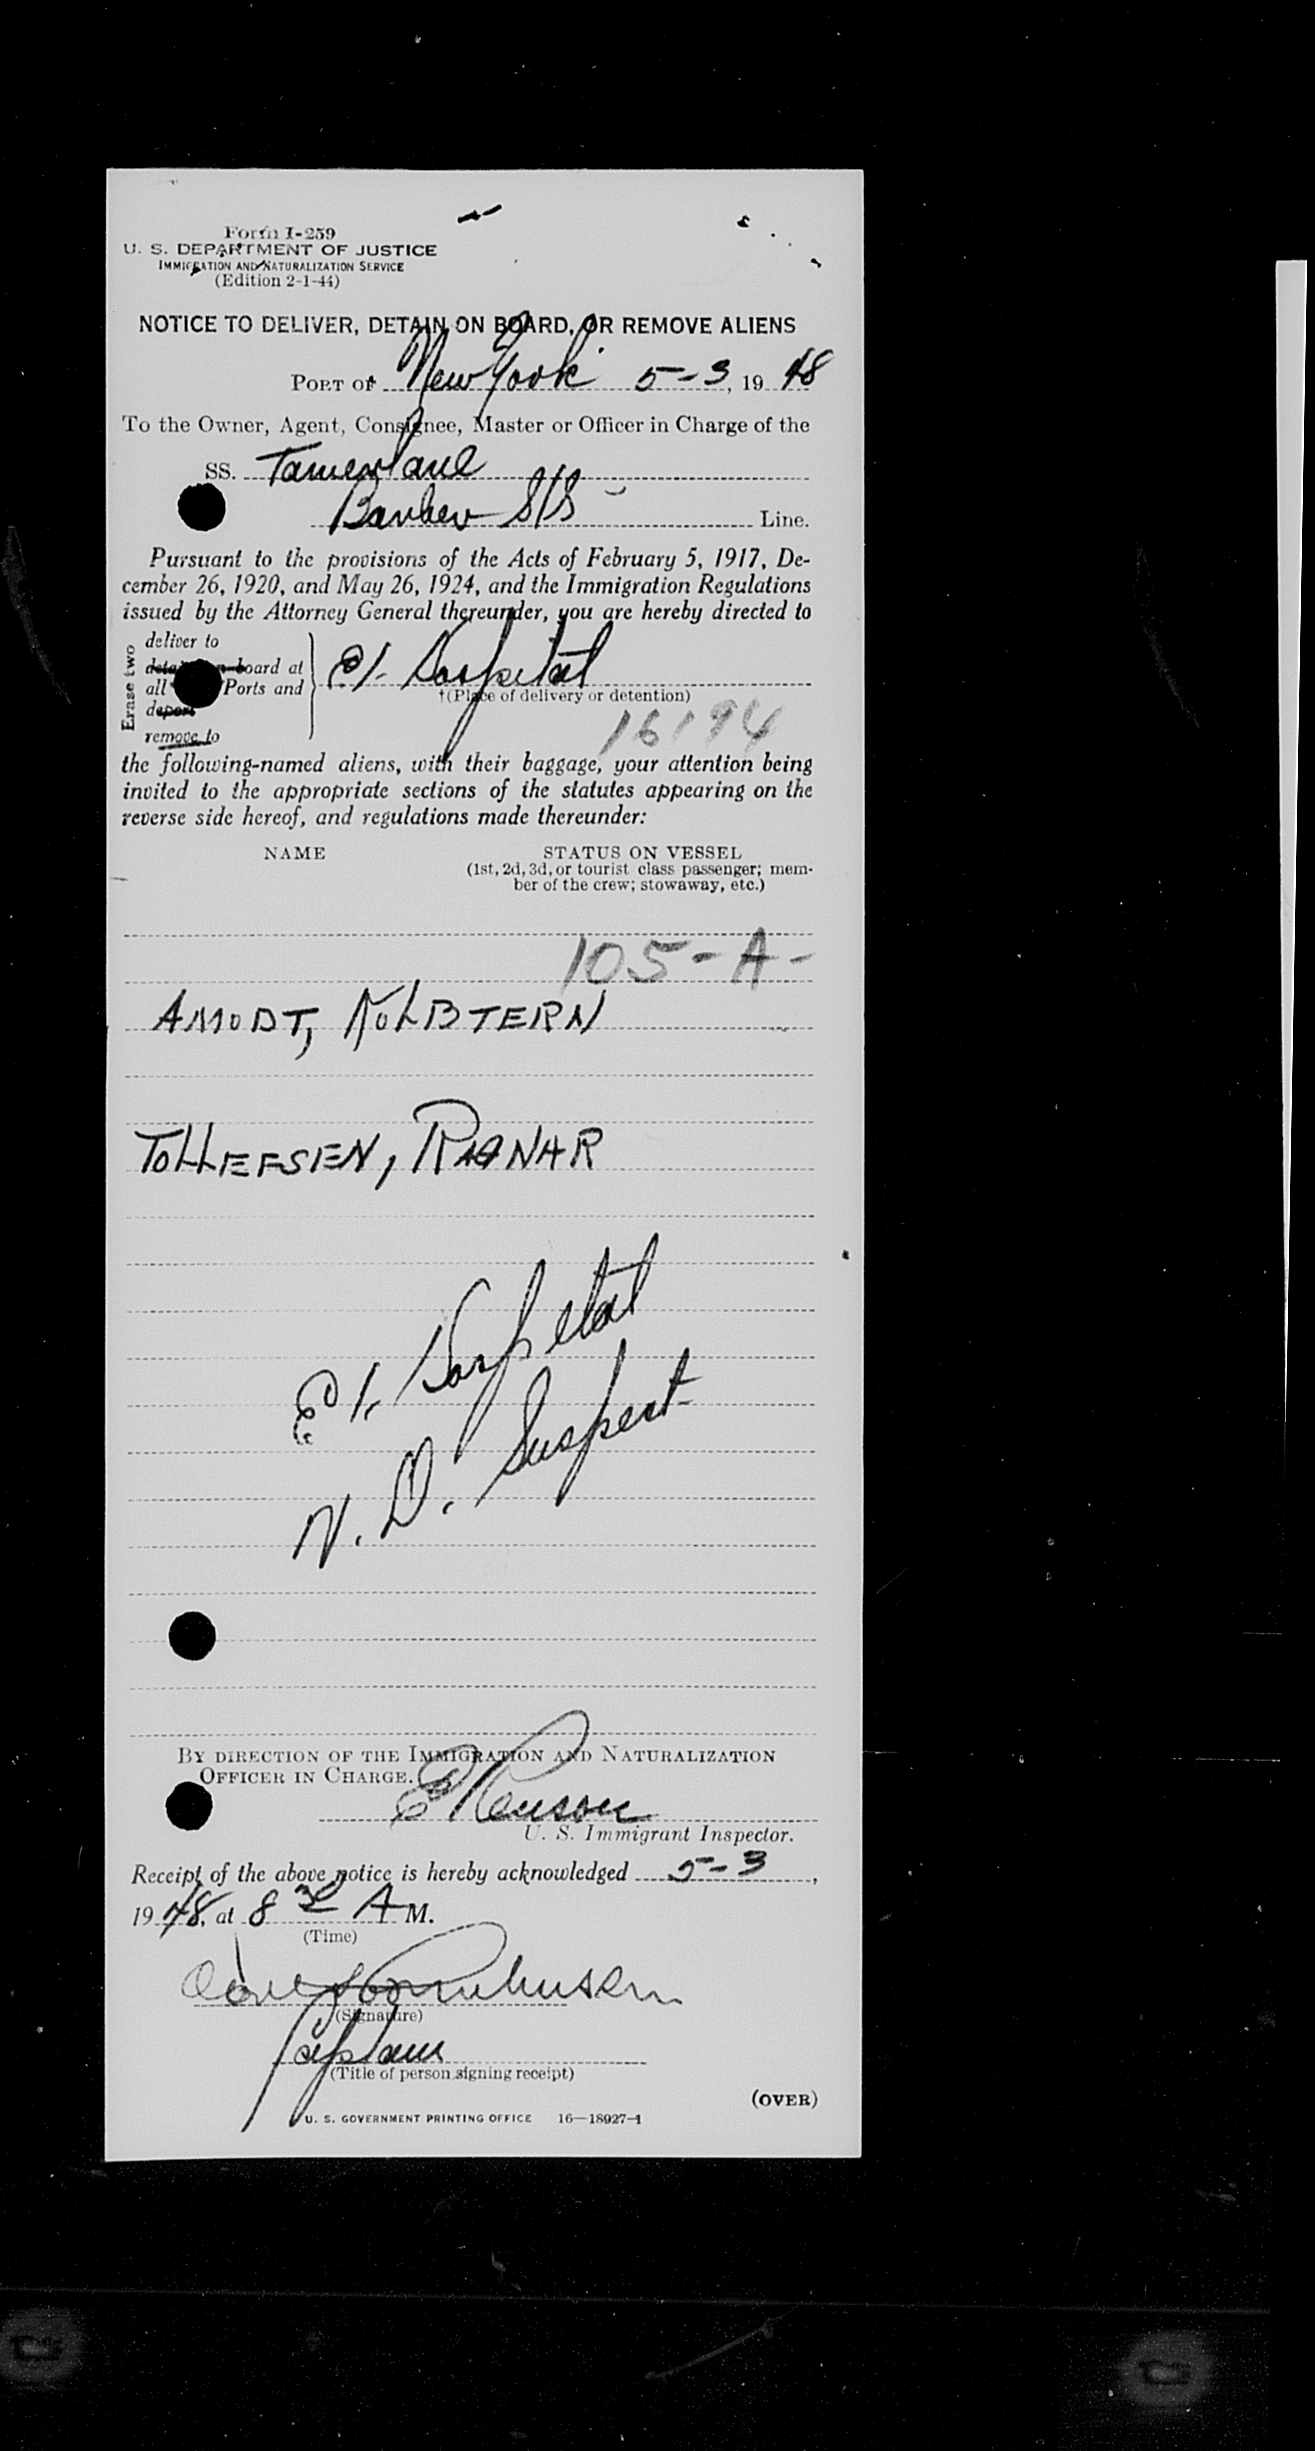 Form I-259
U. S. DEPARTMENT OF JUSTICE
IMMIGRATION AND NATURALIZATION SERVICE
(Edition 2-1-44)
NOTICE TO DELIVER, DETAIN ON BOARD, OR REMOVE ALIENS
PORT OF New York 5-3, 19 48
To the Owner, Agent, Consignee, Master or Officer in Charge of the
SS. Tamerlane
Barber S/S Line.
Pursuant to the provisions of the Acts of February 5, 1917, De-
cember 26, 1920, and May 26, 1924, and the Immigration Regulations
issued by the Attorney General thereunder, you are hereby directed to
Erase two
deliver to
board at
all Ports and
deport
remove to
EI. Hospital
†(Place of delivery or detention)
16194
the following-named aliens, with their baggage, your attention being
invited to the appropriate sections of the statutes appearing on the
reverse side hereof, and regulations made thereunder:
NAME
STATUS ON VESSEL
(1st, 2d, 3d, or tourist class passenger; mem-
ber of the crew; stowaway, etc.)
105-A-
AMODT, KOLBTERN
TOLLEFSEN, RAGNAR
E I. Hospital
V. D. Suspect
BY DIRECTION OF THE IMMIGRATION AND NATURALIZATION
OFFICER IN CHARGE.
U. S. Immigrant Inspector.
Receipt of the above notice is hereby acknowledged 5-3,
19 48, at 8 30 A M.
(Time)
(Signature)
Captain
(Title of person signing receipt)
(OVER)
U. S. GOVERNMENT PRINTING OFFICE 16—18927-1